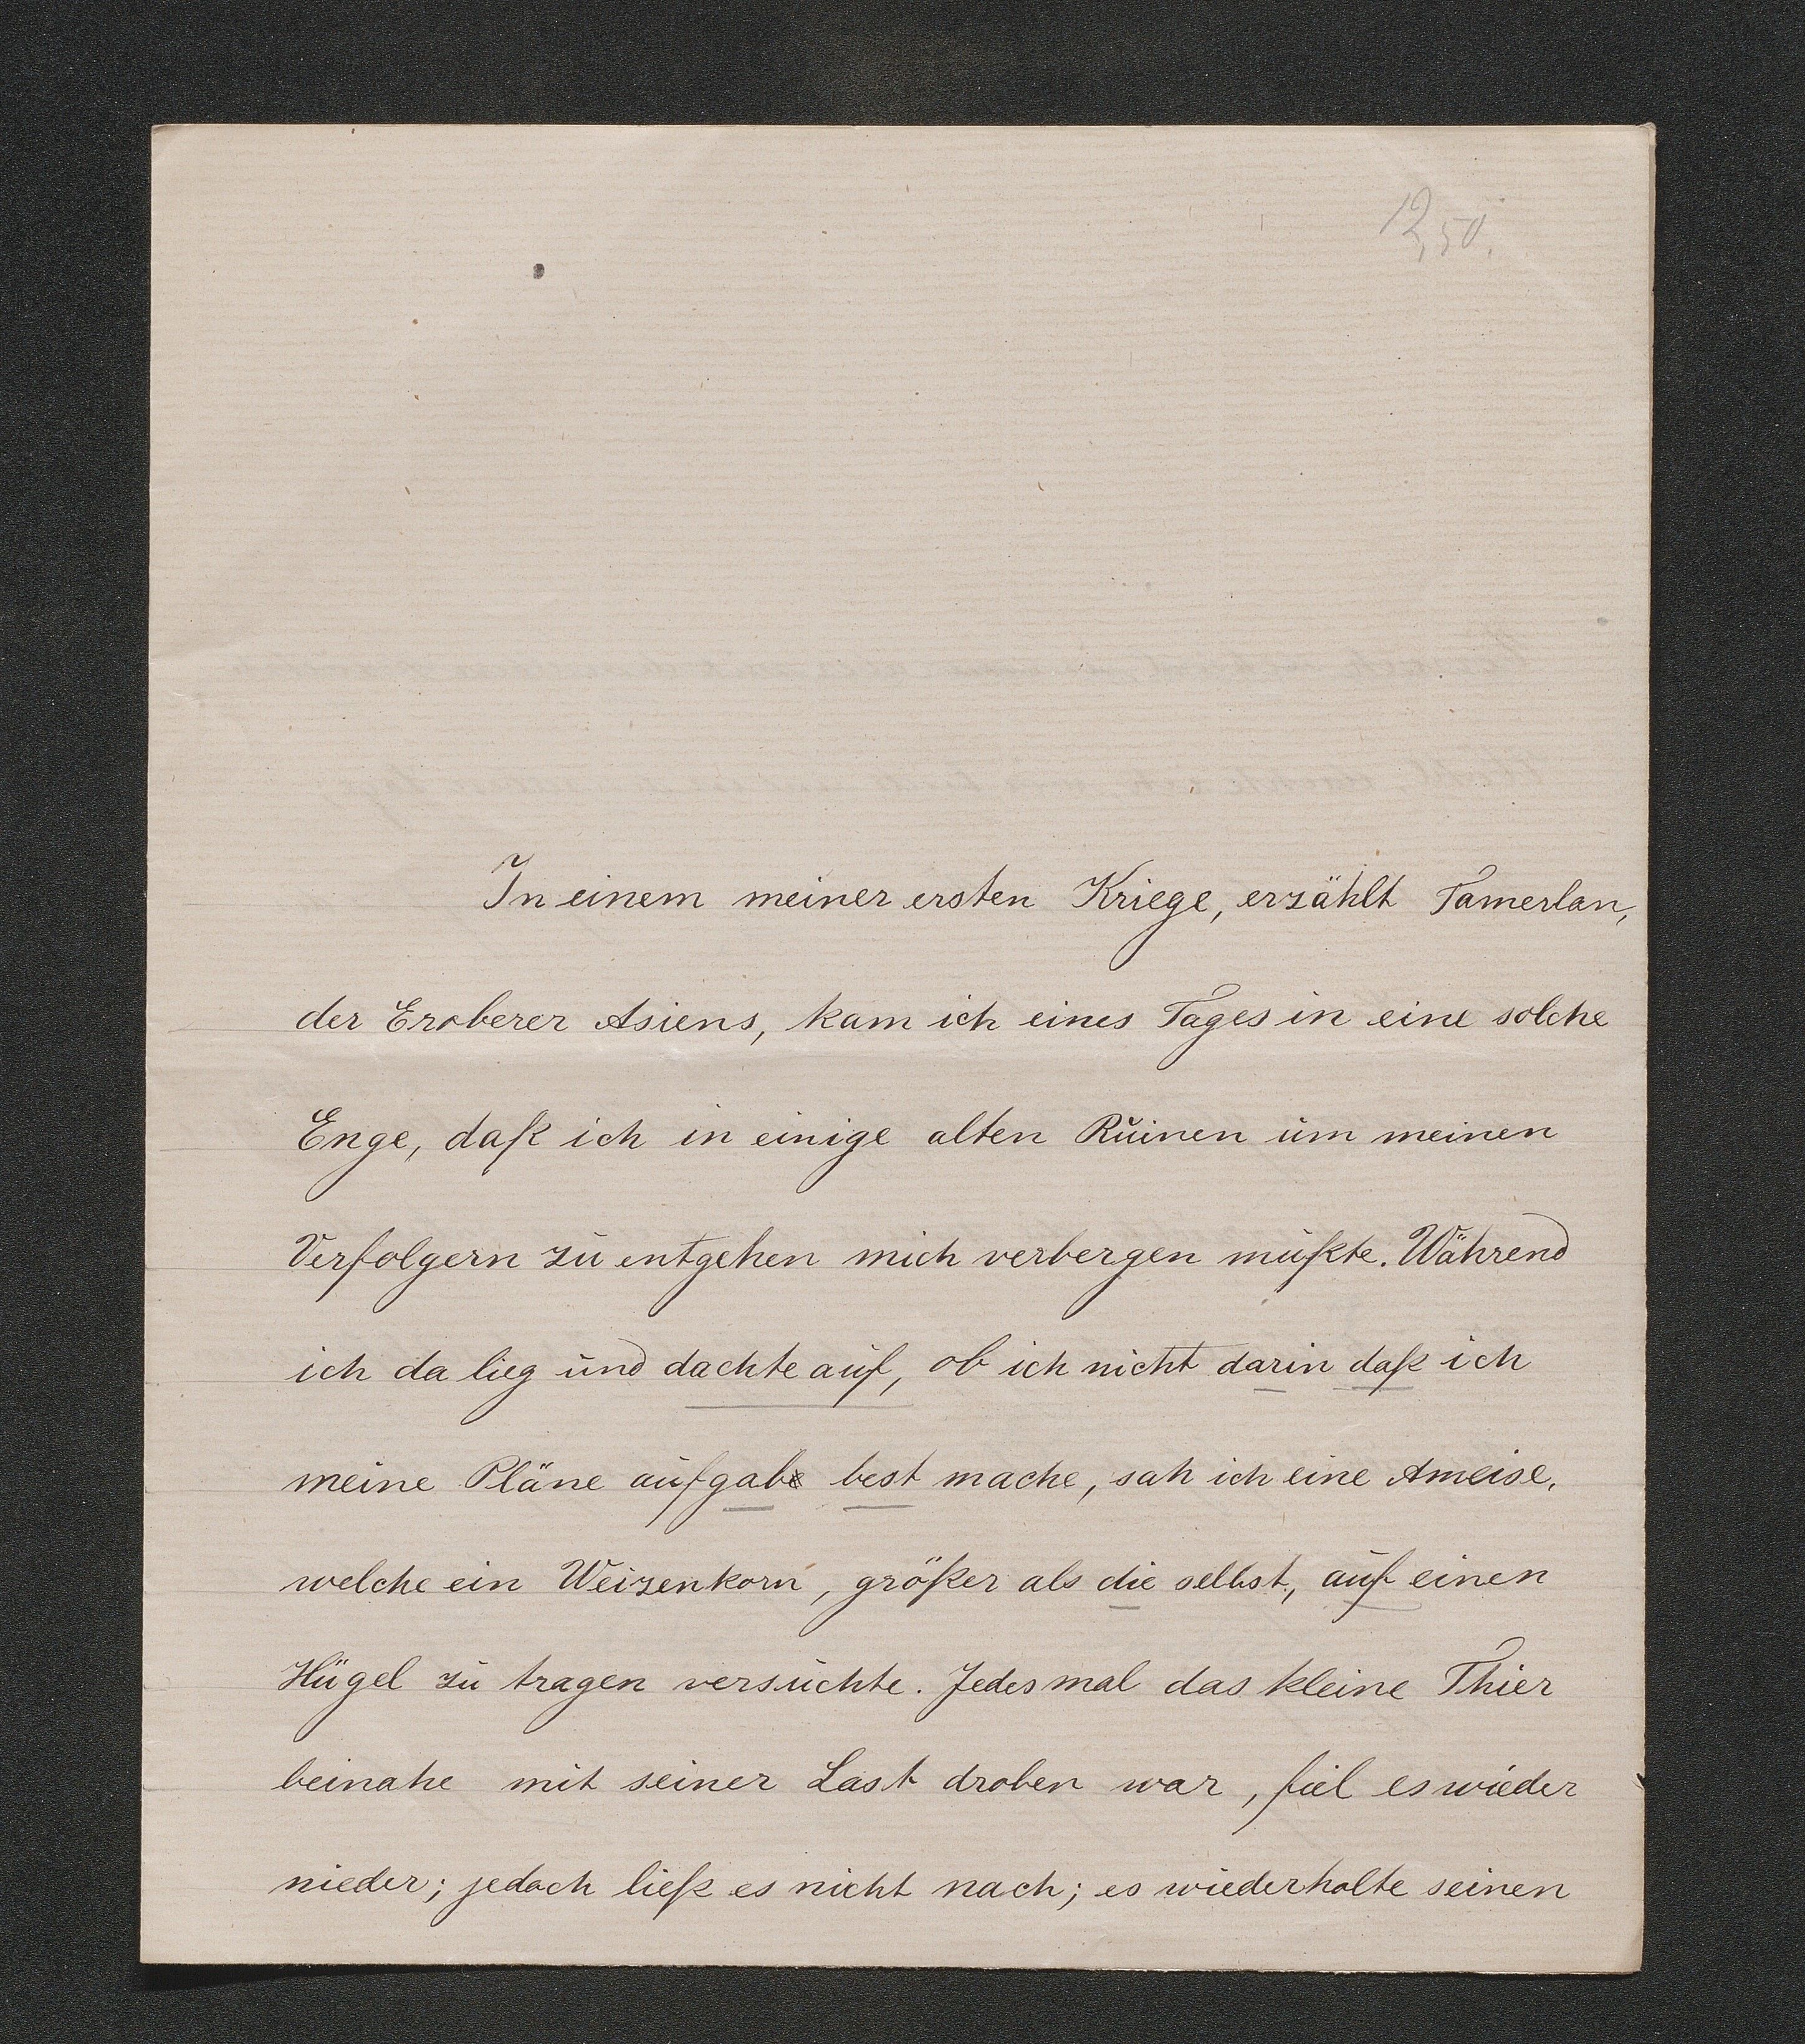 12,50.
In einem meiner ersten Kriege, erzählt Tamerlan,
der Eroberer Asiens, kam ich eines Tages in eine solche
Enge, daß ich in einige alten Ruinen um meinen
Verfolgern zu entgehen mich verbergen mußte. Während
ich da lieg und dachte auf, ob ich nicht darin daß ich
meine Pläne aufgab best mache, sah ich eine Ameise,
welche ein Weizenkorn, größer als die selbst, auf einen
Hügel zu tragen versuchte. Jedesmal das kleine Thier
beinahe mit seiner Last droben war, fiel es wieder
nieder; jedoch ließ es nicht nach; es wiederholte seinen